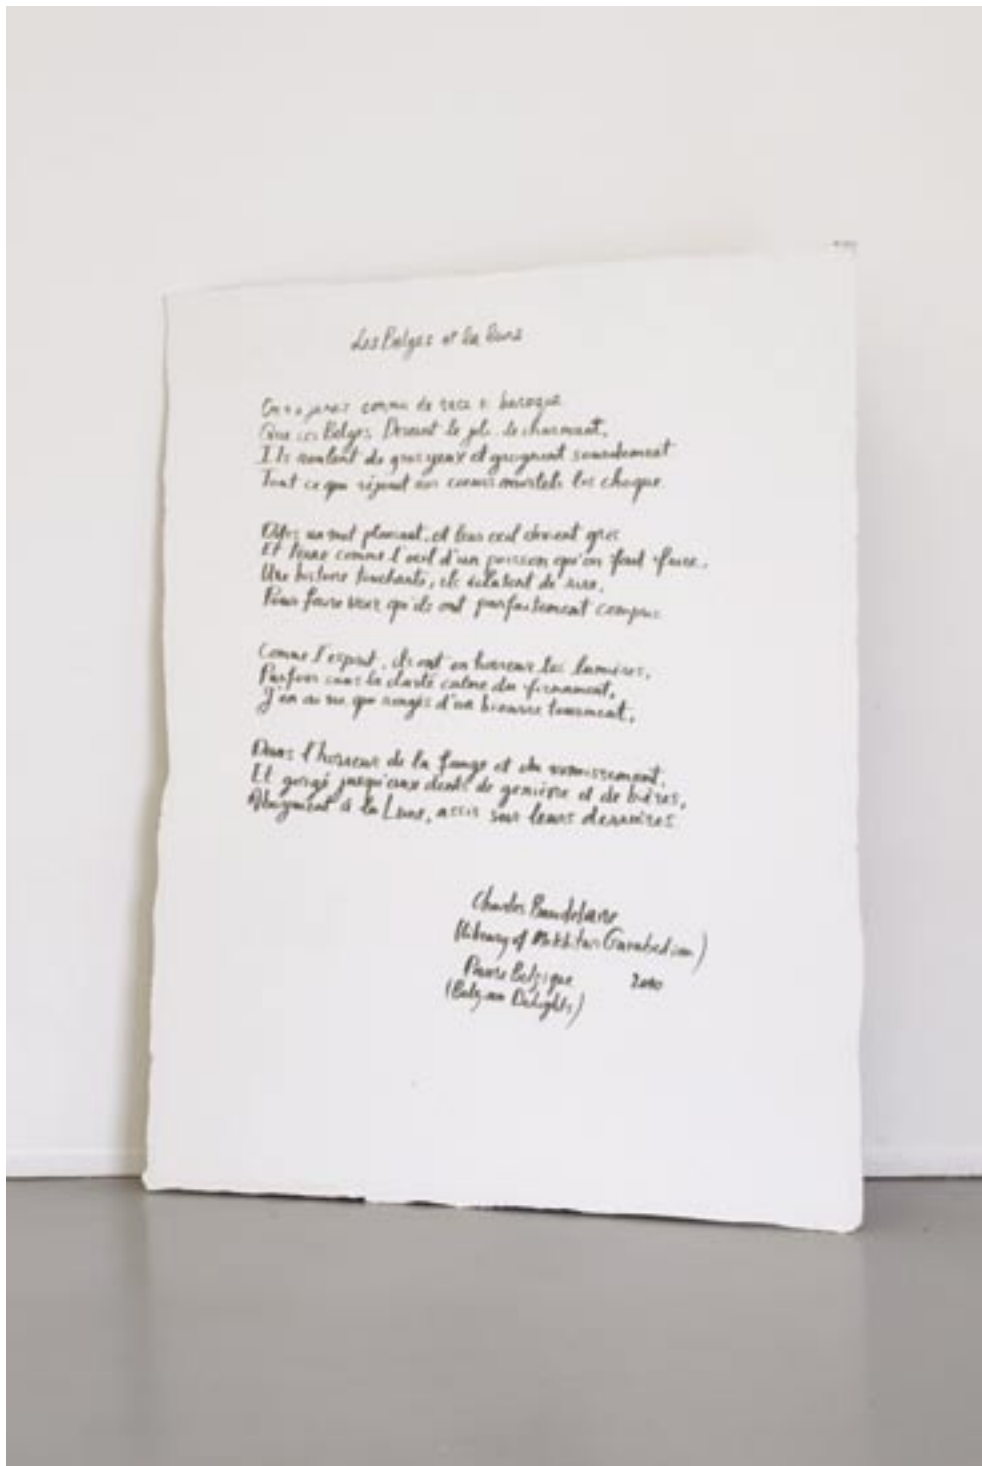 Les Belges et la lune
On n'a jamais connu de race si baroque
Que ces Belges. Devant le joli, le charmant,
Ils roulent de gros yeux et grognent sourdement
Tout ce qui réjouit nos coeurs mortels les choque.
Dites un mot plaisant, et leur oeil devient gris
Et terne comme l'oeil d'un poisson qu'on fait frire.
Une histoire touchante, ils éclatent de rire,
Pour faire voir qu'ils ont parfaitement compris
Comme l'esprit, ils ont en horreur les lumières,
Parfois sous la clarté calme du firmament,
J'en ai vu, qui rongés d'un bizarre tourment,
Dans l'horreur de la fange et du vomissement,
Et gorgés jusqu'aux dents de genièvre et de bières,
Aboyaient à la Lune, assis sur leurs derrières
Charles Baudelaire
(library of Mekhitar Garabedian)
Pauvre Belgique 2010
(Belgian Delights)